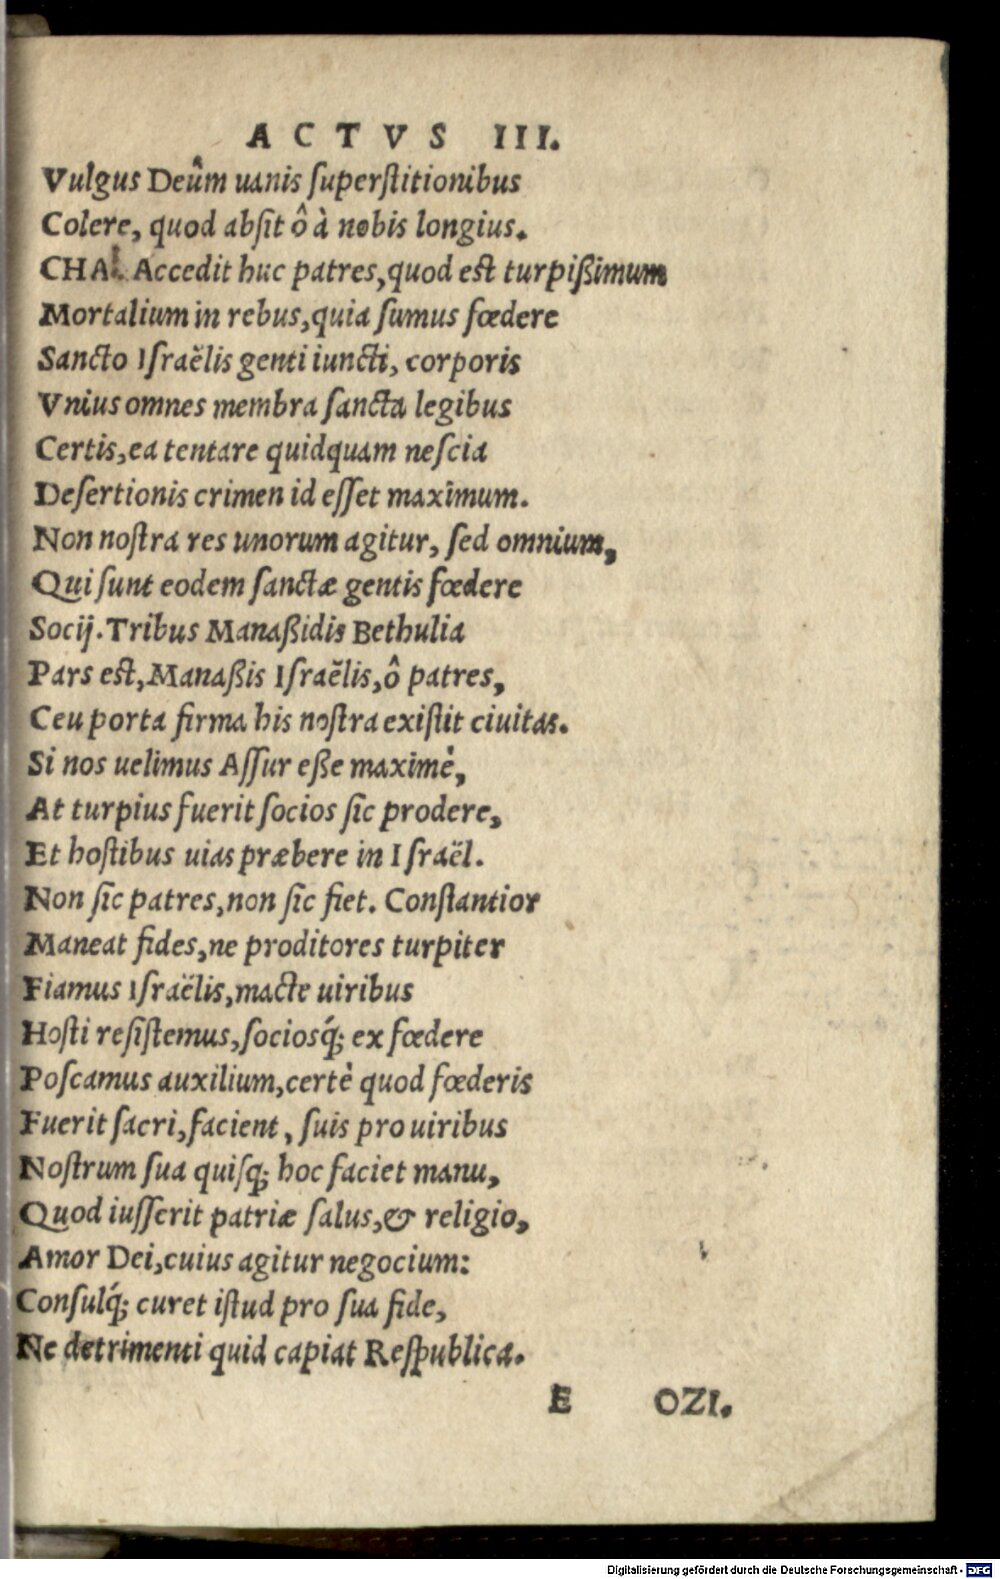 ACTVS III.
Vulgus Deûm uanis ſuperſtitionibus
Colere, quod abſit ô à nobis longius.
CHAL. Accedit huc patres, quod est turpißimum
Mortalium in rebus, quia ſumus fœdere
Sancto Iſraëlis genti iuncti, corporis
Vnius omnes membra ſancta legibus
Certis, ea tentare quidquam neſcia
Deſertionis crimen id eſſet maximum.
Non noſtra res unorum agitur, ſed omnium,
Qui ſunt eodem ſanctæ gentis fœdere
Socij. Tribus Manaßidis Bethulia
Pars est, Manaßis Iſraëlis, ô patres,
Ceu porta firma his noſtra exiſtit ciuitas.
Si nos uelimus Aſſur eße maximè,
At turpius fuerit ſocios ſic prodere,
Et hoſtibus uias præbere in Iſraël.
Non ſic patres, non ſic fiet. Conſtantior
Maneat fides, ne proditores turpiter
Fiamus Iſraëlis, macte uiribus
Hoſti reſiſtemus, ſociosq́; ex fœdere
Poſcamus auxilium, certè quod fœderis
Fuerit ſacri, facient, ſuis pro uiribus
Noſtrum ſua quiſq; hoc faciet manu,
Quod iuſſerit patriæ ſalus, & religio,
Amor Dei, cuius agitur negocium:
Conſulq́; curet iſtud pro ſua fide,
Ne detrimenti quid capiat Reſpublica.
E OZI.
Digitalisierung gefördert durch die Deutsche Forschungsgemeinschaft - DFG